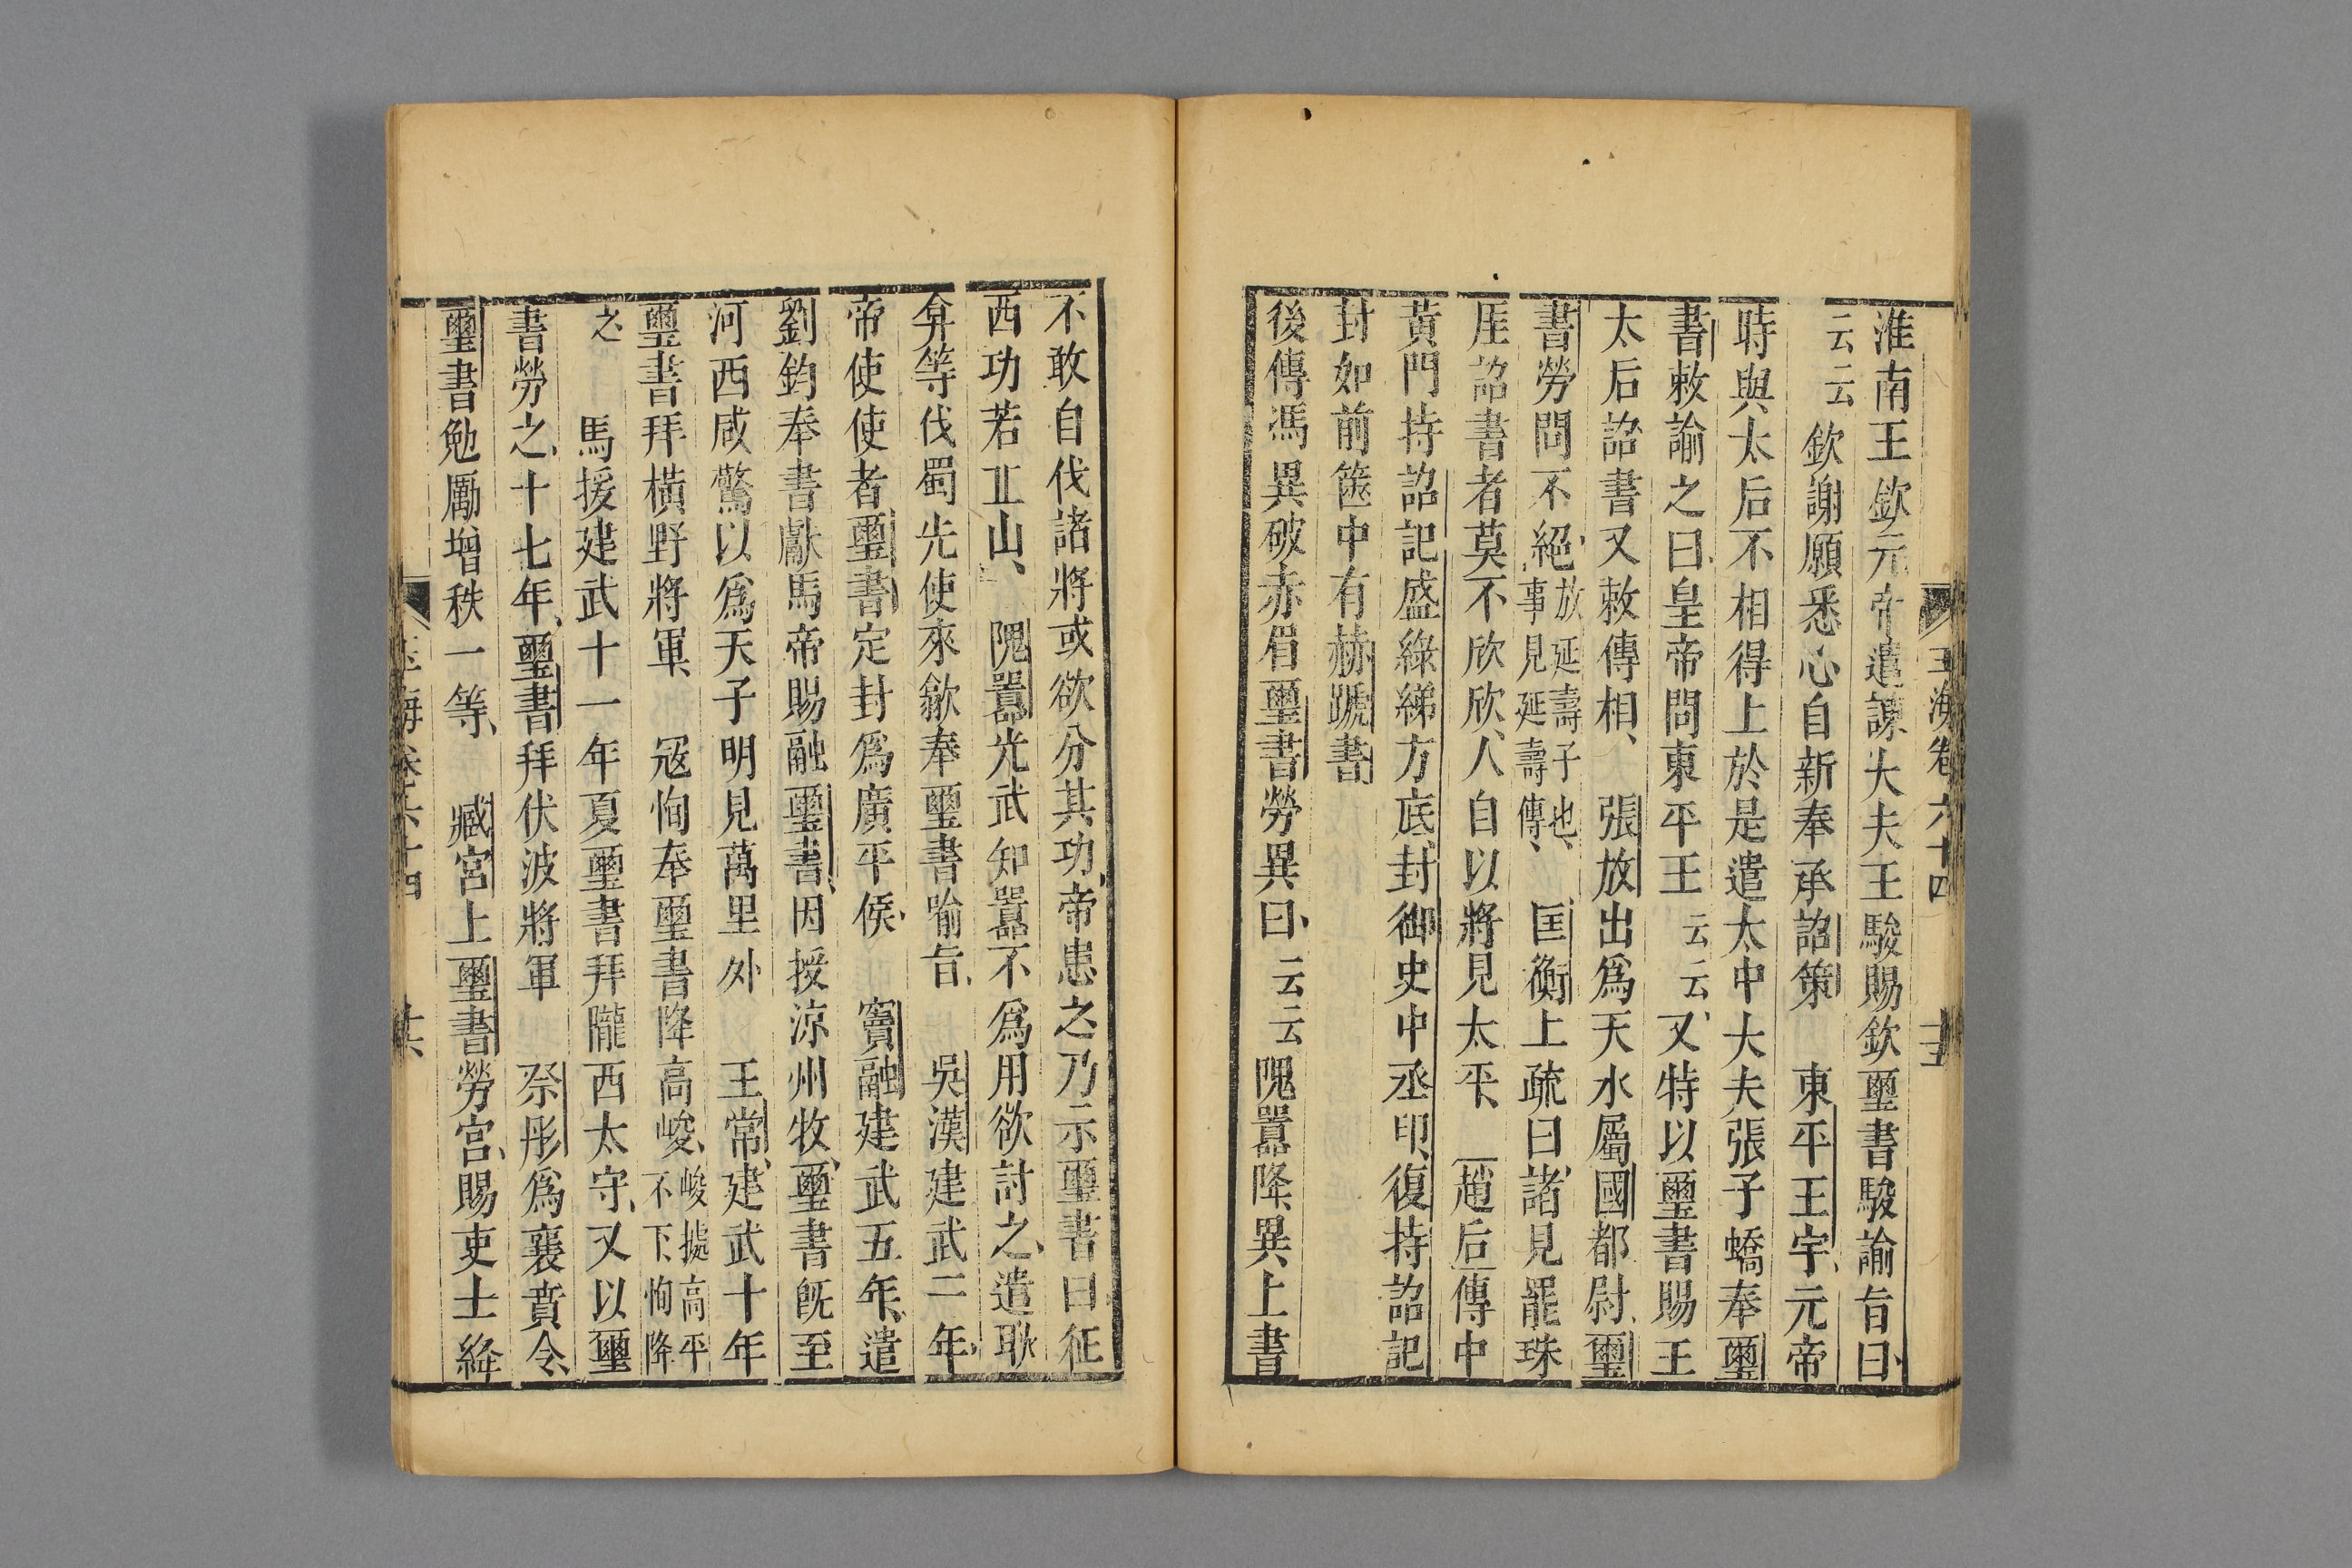 玉海卷六十四 十五
淮南王欽元帝遣諫大夫王駿賜欽璽書駿諭旨曰
云云欽謝願悉心自新奉承詔策 東平王宇元帝
時與太后不相得上於是遣太中大夫張子蟜奉璽
書敕諭之曰皇帝問東平王云云又特以璽書賜王
太后詔書又敕傅相 張放出爲天水屬國都尉璽
書勞問不絕放延壽子也事見延壽傳 匡衡上疏曰諸見罷珠
厓詔書者莫不欣欣人自以將見太平 趙后傳中
黃門持詔記盛綠綈方底封御史中丞印復持詔記
封如前篋中有赫蹏書
後傳馮異破赤眉璽書勞異曰云云隗囂降異上書
不敢自伐諸將或欲分其功帝患之乃示璽書曰征
西功若丘山 隗囂光武知囂不爲用欲討之遣耿
弇等伐蜀先使來歙奉璽書喻旨 吳漢建武二年
帝使使者璽書定封爲廣平侯 竇融建武五年遣
劉鈞奉書獻馬帝賜融璽書因授涼州牧璽書旣至
河西咸驚以爲天子明見萬里外 王常建武十年
璽書拜橫野將軍 寇恂奉璽書降高峻峻據高平不下恂降
之 馬援建武十一年夏璽書拜隴西太守又以璽
書勞之十七年璽書拜伏波將軍 祭肜爲襄賁令
璽書勉勵增秩一等 臧宮上璽書勞宮賜吏士絳
玉海卷六十四 十六